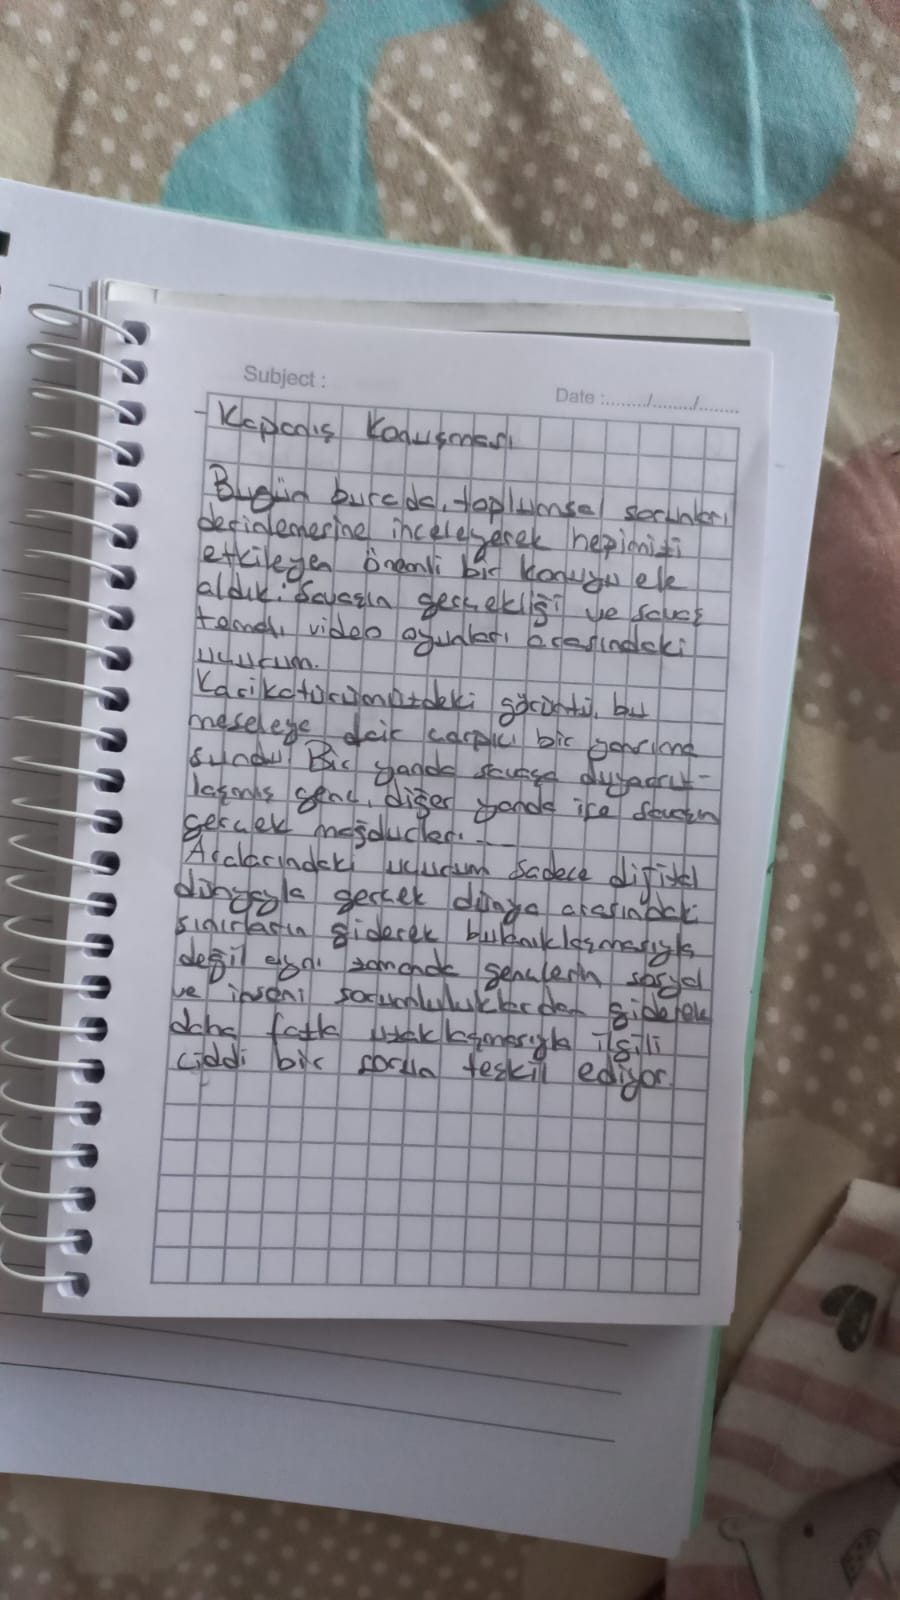 Subject :
Date :......../......../........
- Kapanış Konuşması
Bugün burada, toplumsal sorunları
derinlemesine inceleyerek hepimizi
etkileyen önemli bir konuyu ele
aldık: Savaşın gerçekliği ve savaş
temalı video oyunları arasındaki
uçurum.
Karikatürümüzdeki görüntü, bu
meseleye dair çarpıcı bir yansıma
sundu. Bir yanda savaşa duyarsız-
laşmış genç, diğer yanda ise savaşın
gerçek mağdurları.
Aralarındaki uçurum sadece dijital
dünyayla gerçek dünya arasındaki
sınırların giderek bulanıklaşmasıyla
değil aynı zamanda gençlerin sosyal
ve insani sorumluluklardan giderek
daha fazla uzaklaşmasıyla ilgili
ciddi bir sorun teşkil ediyor.